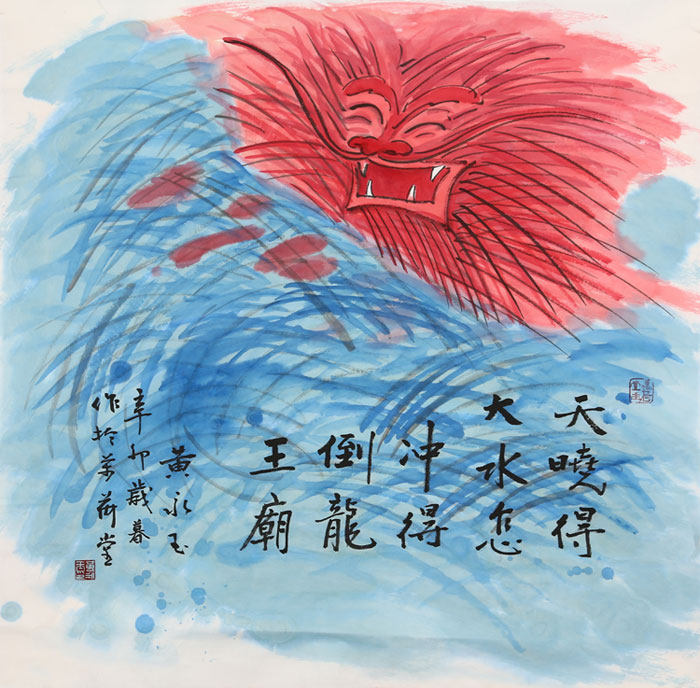 天曉得
大水怎
冲得
倒龍
王廟
黄永玉
辛卯歲暮
作於萬荷堂